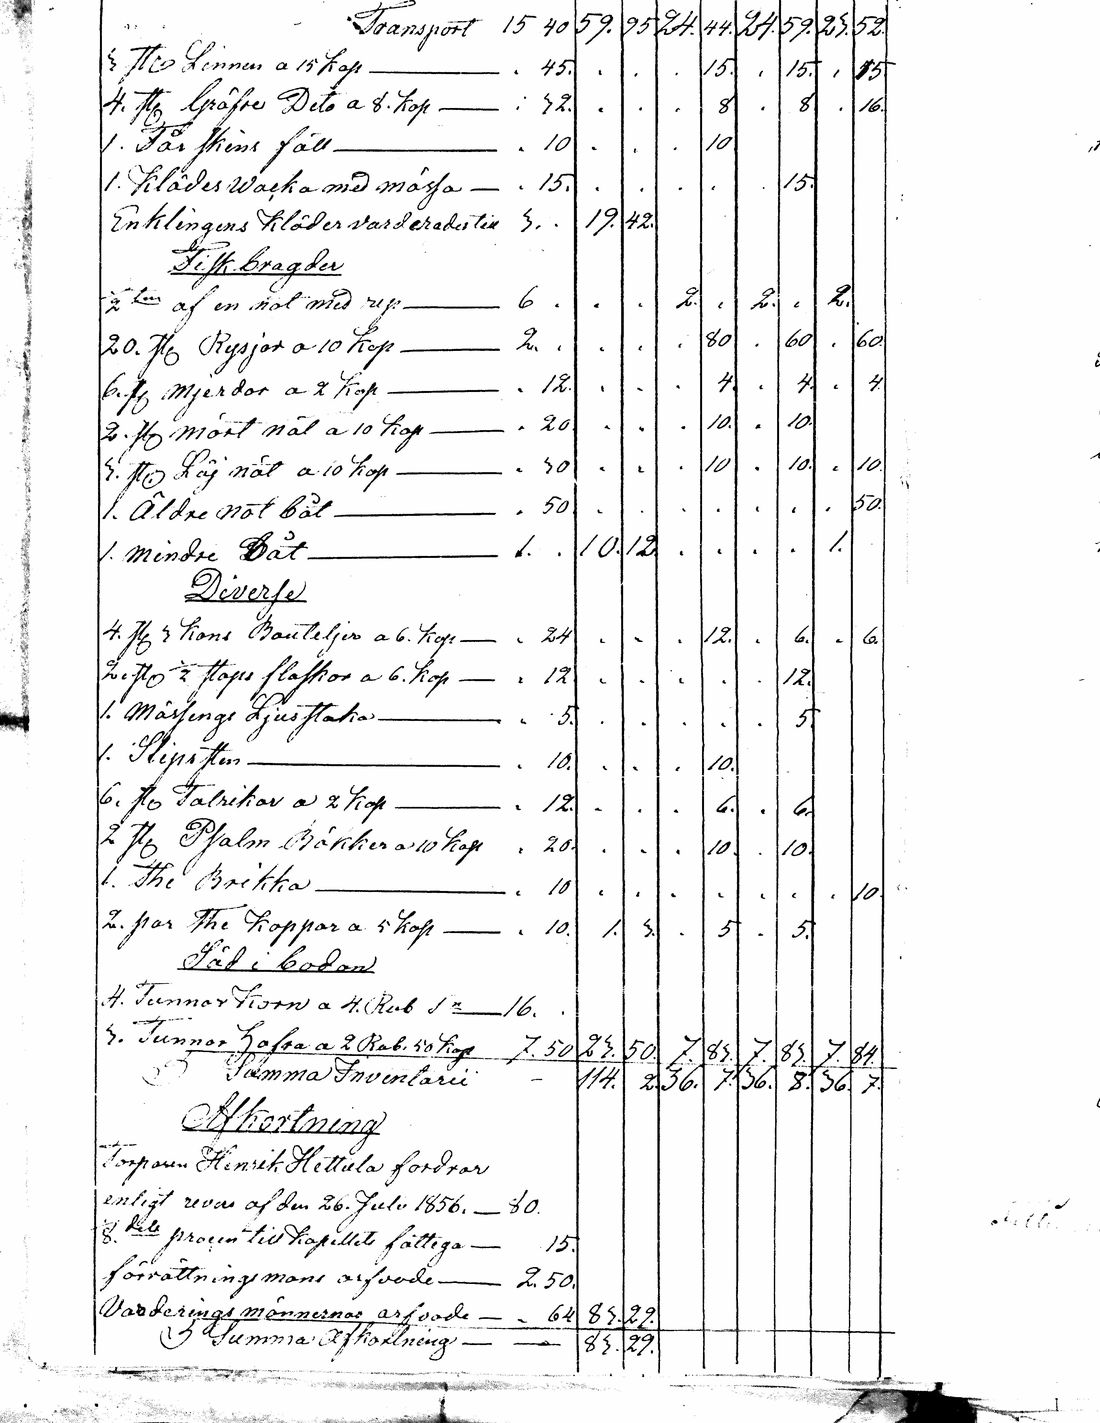 Transport 15 40 59. 95 24. 44. 24. 59. 23. 52.
3 st. Linnen a 15 Kop . 45. . . . 15. . 15. . 15
4. st. Gröfre Dito a 8. Kop . 32. . . . 8 . 8 . 16.
1. Får skins fäll . 10 . . . 10
1. Klädes Wacka med mössa . 15. . . . . . 15.
Enklingens Kläder värderades till 3. . 19. 42.
Fisk bragder
af en not med rep 6 . . . 2. . 2. . 2.
20. st. Rysjor a 10 Kop 2. . . . . 80 . 60 . 60
6. st. Mjerdor a 2 Kop . 12. . . . 4. . 4. . 4
2. st. mört nät a 10 Kop . 20 . . . 10. . 10.
3. st. Löj nät a 10 Kop . 30 . . . 10 . 10. . 10.
1. Äldre not båt . 50 . . . . . . . 50.
1. mindre Båt 1. . 10. 12 . . . . 1.
Diverse
4. st. 3 Kans Bouteljer a 6. Kop . 24 . . . 12. . 6. . 6.
2. st. 2 stops flaskor a 6. Kop . 12 . . . . . 12.
1. Mässings Ljusstaka . 5. . . . . . 5
1. Slipsten . 10. . . . 10.
6. st. Talrikar a 2 Kop . 12. . . . 6. . 6.
2 st. Psalm Böcker a 10 Kop . 20. . . . 10. . 10.
1. The Brikka . 10 . . . . . . . 10.
2. par The Koppar a 5 Kop . 10. 1. 3. . 5 . 5.
Säd i bodan
4. Tunnor Korn a 4. Rub S:r 16. .
3. Tunnor Hafra a 2 Rub. 50 Kop 7. 50 23. 50. 7. 83. 7. 83. 7. 84.
Summa Inventarii - 114. 2 36. 7. 36. 8. 36. 7.
Afkortning
Torparen Henrik Hettula fordrar
enligt revers af den 26. Julii 1856. 80.
8.dels procen till Kapellets fattiga 15.
förrättningsmans arfvode 2. 50.
Värderingsmännernas arfvode . 64 83. 29.
Summa Afkortning 83. 29.